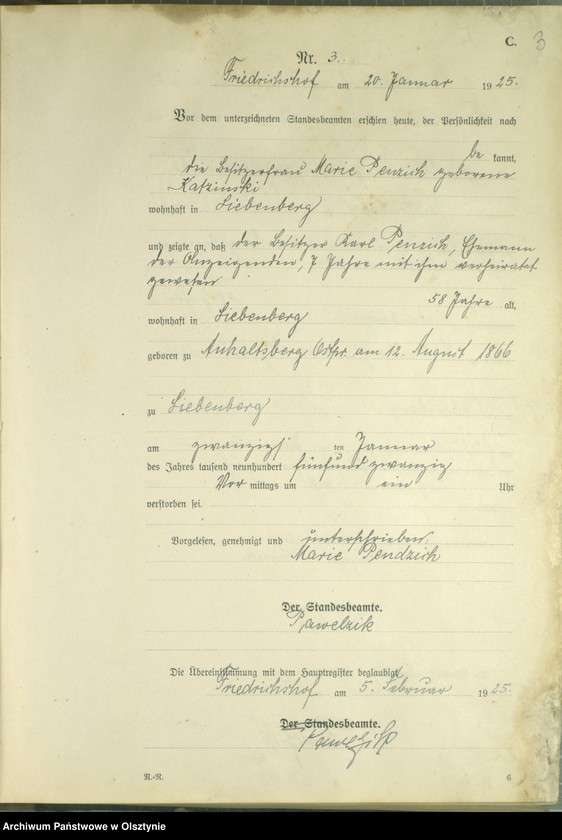 C.
3
Nr. 3.
Friedrichshof am 20. Januar 1925.
Vor dem unterzeichneten Standesbeamten erschien heute, der Persönlichkeit nach
be kannt,
die Besitzerfrau Marie Penzich geborene
Katzinski
wohnhaft in Liebenberg
und zeigte an, daß der Besitzer Karl Penzich, Ehemann
der Anzeigenden, 7 Jahre mit ihm verheiratet
gewesen
58 Jahre alt,
wohnhaft in Liebenberg
geboren zu Anhaltsberg Ostpr. am 12. August 1866
zu Liebenberg
am zwanzigsten Januar
des Jahres tausend neunhundert fünfundzwanzig
Vor mittags um ein Uhr
verstorben sei.
Vorgelesen, genehmigt und unterschrieben.
Marie Pendzich
Der Standesbeamte.
Pawelzik
Die Übereinstimmung mit dem Hauptregister beglaubigt
Friedrichshof am 5. Februar 1925.
Der Standesbeamte.
Pawelzik
N.-R.
6
Archiwum Państwowe w Olsztynie